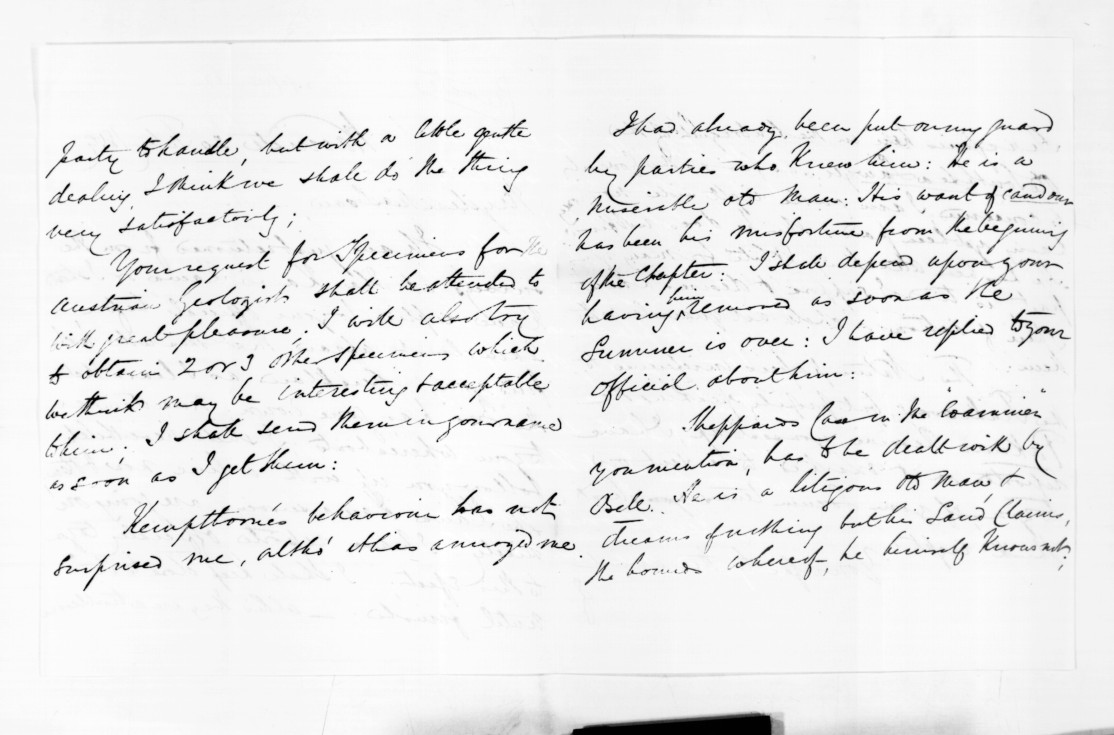 party to handle, but with a little gentle
dealing I think we shall do the thing
very satisfactorily;
Your request for Specimens for the
Austrian Geologist shall be attended to
with great pleasure; I will also try
to obtain 2 or 3 other specimens which
we think may be interesting & acceptable
to him; I shall send them in your name
as soon as I get them:
Kempthorne's behaviour has not
surprised me, altho' it has annoyed me.
I had already been put on my guard
by parties who knew him: He is a
miserable old man: His want of candour
has been his misfortune from the begining
of the Chapter: I shall depend upon your
having him removed as soon as the
Summer is over: I have replied to your
official about him:
Sheppards Case in the "Examiner"
you mention, has to be dealt with by
Bell. He is a litigous old man, &
dreams of nothing but his Land Claims,
the bounds whereof, he himself knows not;